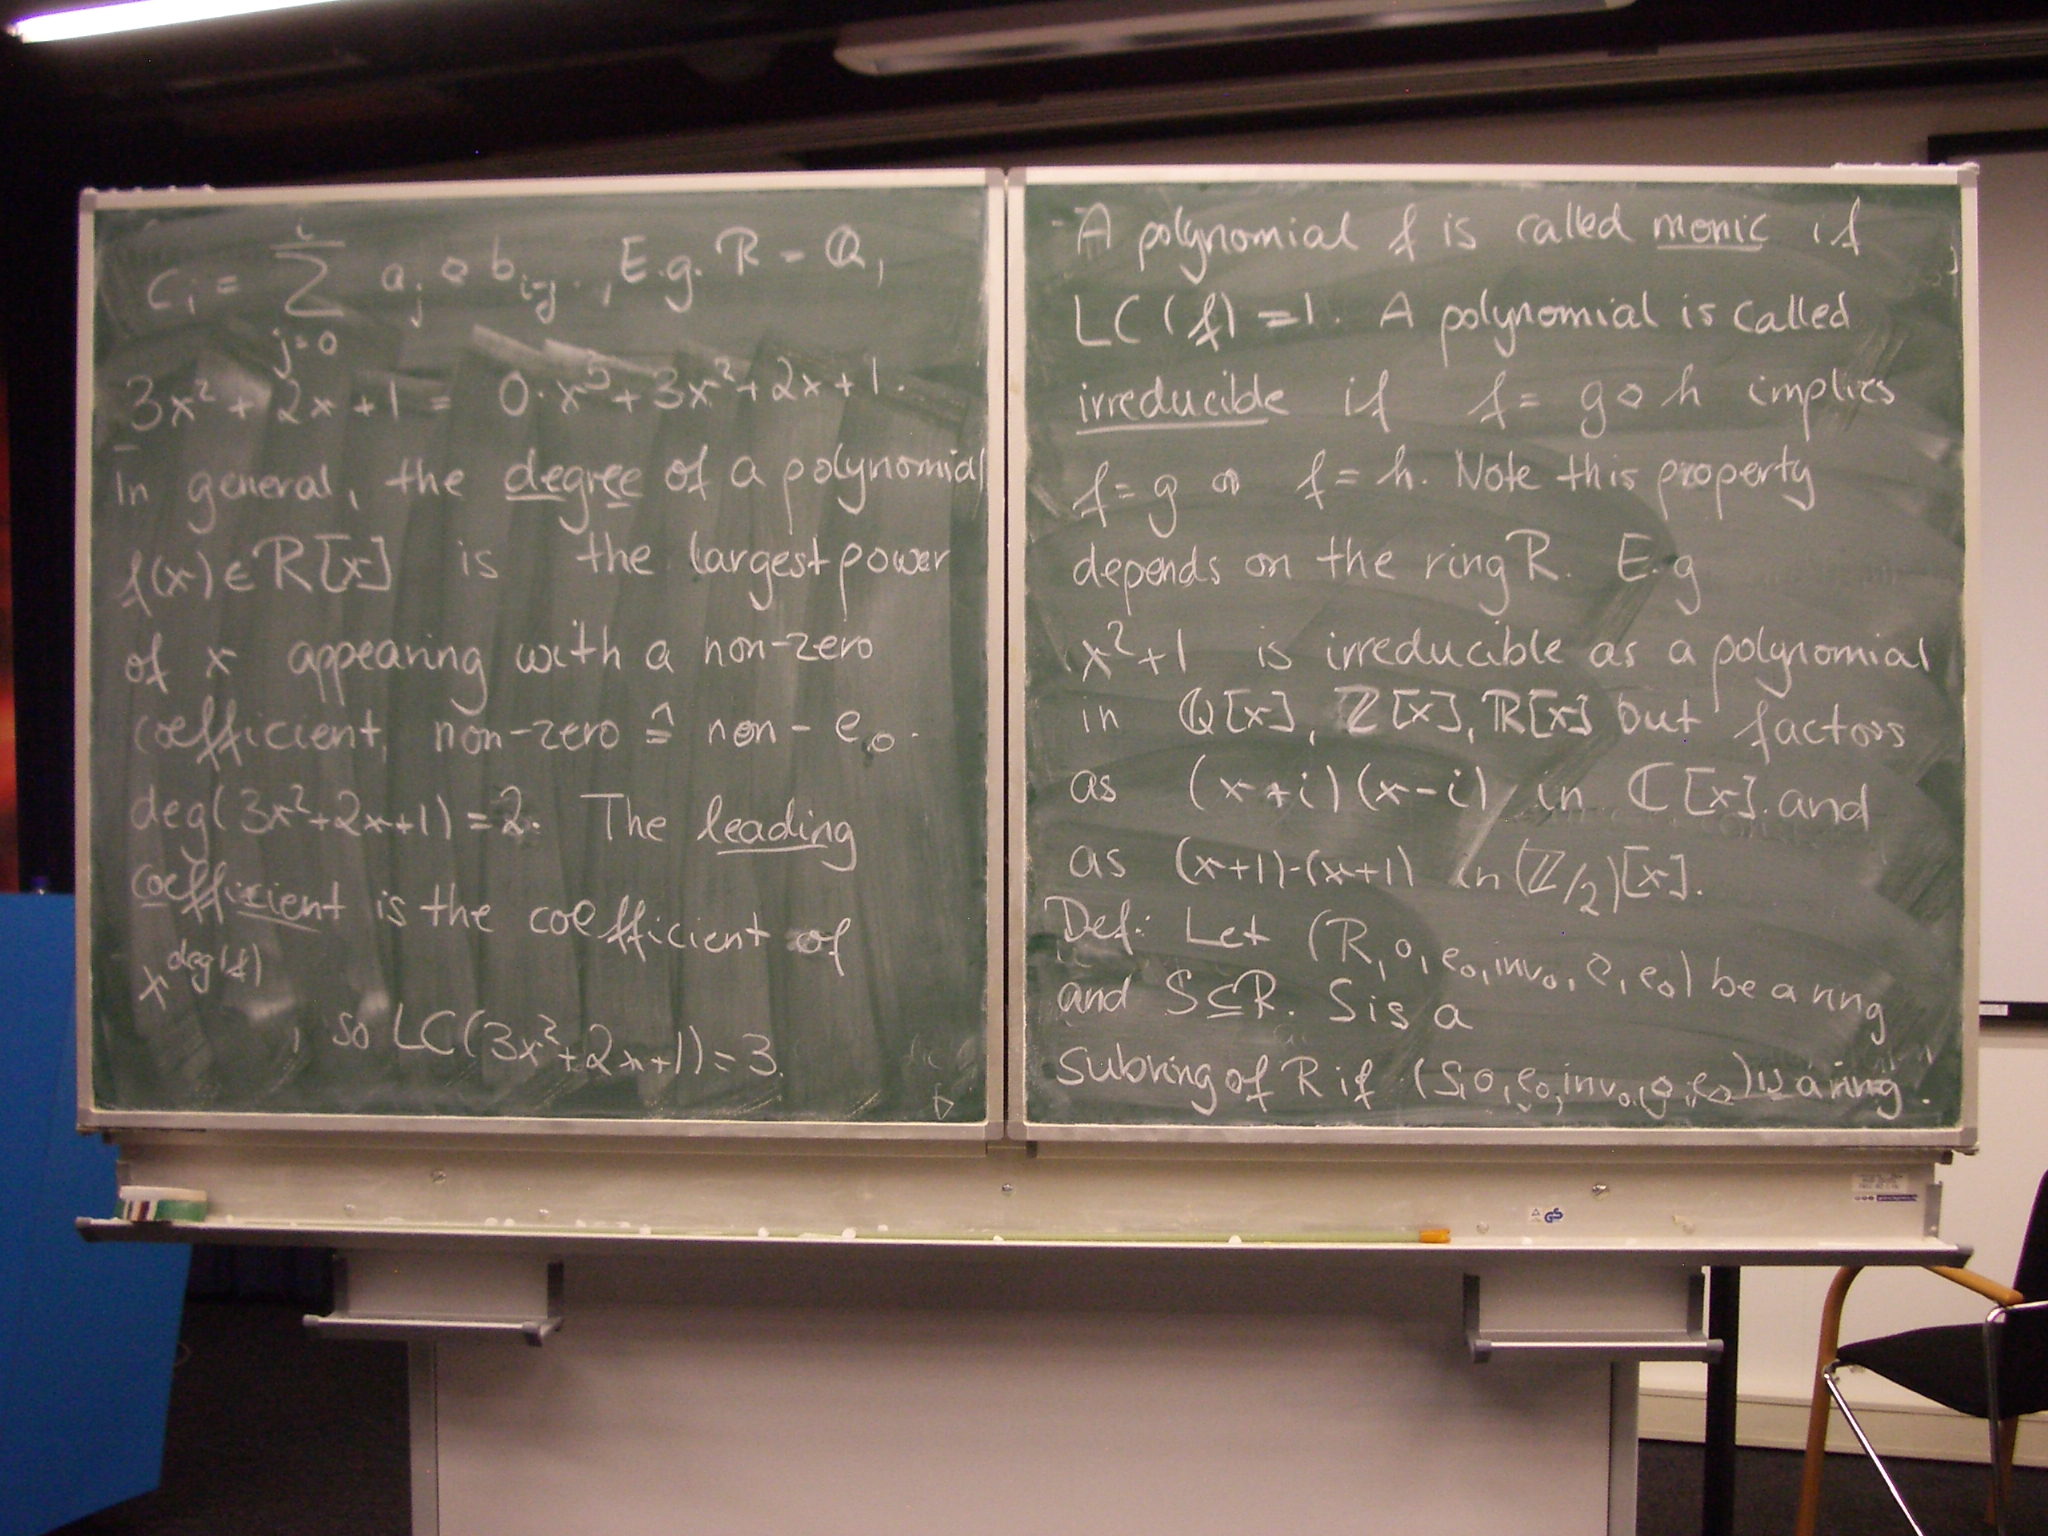 c_i = Σ_{j=0}^{i} a_j ⋄ b_{i-j}., E.g. R = ℚ,
3x² + 2x + 1 = 0·x³ + 3x² + 2x + 1.
In general, the degree of a polynomial
f(x) ∈ R[x] is the largest power
of x appearing with a non-zero
coefficient, non-zero ≙ non - e_∘.
deg(3x²+2x+1) = 2. The leading
coefficient is the coefficient of
x^{deg(f)}
, so LC(3x²+2x+1) = 3.
A polynomial f is called monic if
LC(f) = 1. A polynomial is called
irreducible if f = g ⋄ h implies
f = g or f = h. Note this property
depends on the ring R. E.g
x²+1 is irreducible as a polynomial
in ℚ[x], ℤ[x], ℝ[x] but factors
as (x+i)(x-i) in ℂ[x]. and
as (x+1)·(x+1) in (ℤ/2)[x].
Def: Let (R, ∘, e_∘, inv_∘, ⋄, e_⋄) be a ring
and S ⊆ R. S is a
subring of R if (S, ∘, e_∘, inv_∘, ⋄, e_⋄) is a ring.